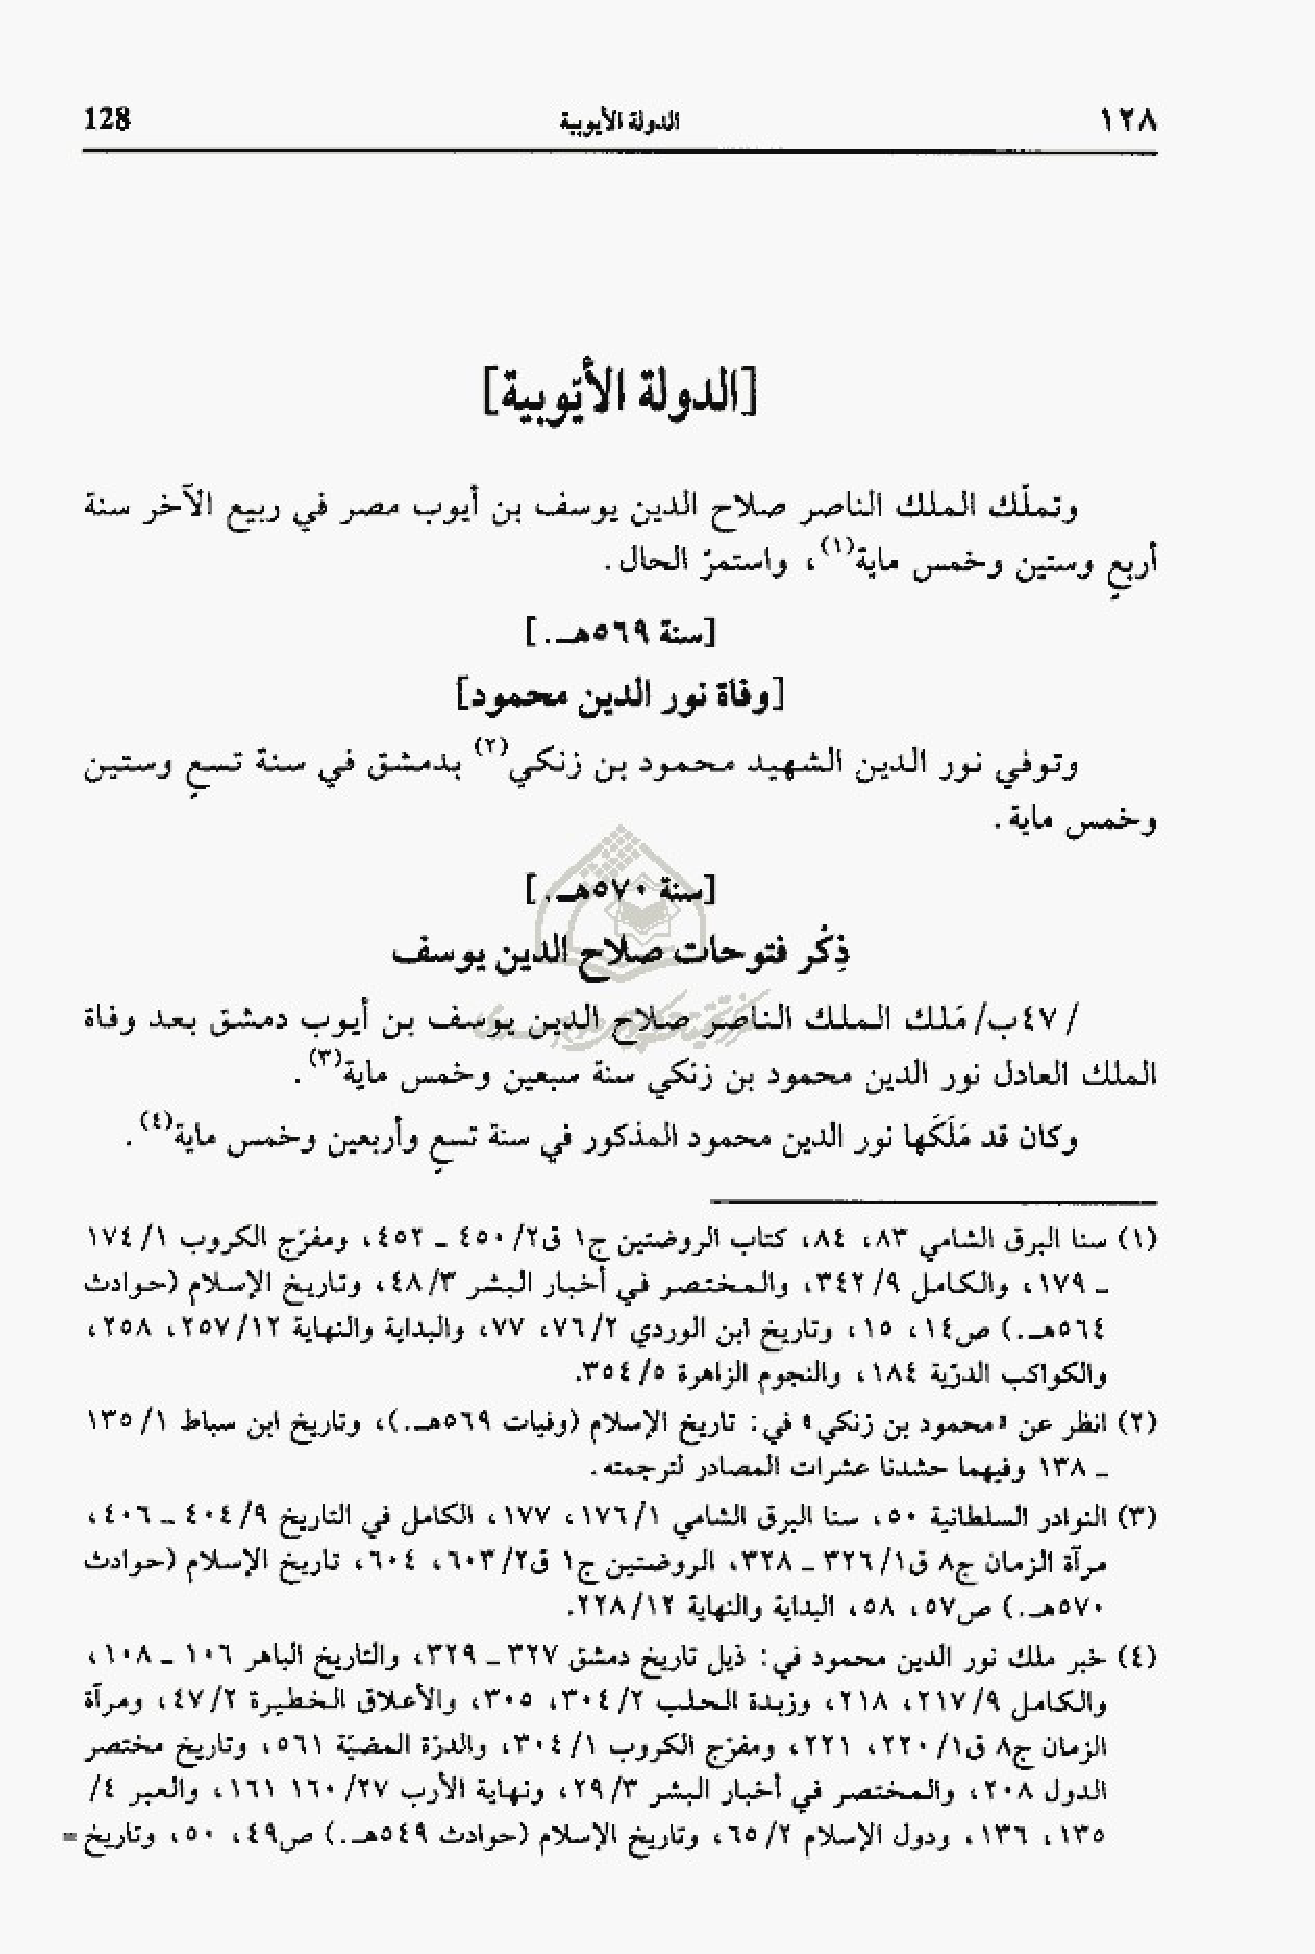 ١٢٨ الدولة الأيوبية 128
[الدولة الأيّوبية]
وتملّك الملك الناصر صلاح الدين يوسف بن أيوب مصر في ربيع الآخر سنة
أربعٍ وستين وخمس ماية(١)، واستمرّ الحال.
[سنة ٥٦٩هـ.]
[وفاة نور الدين محمود]
وتوفي نور الدين الشهيد محمود بن زنكي(٢) بدمشق في سنة تسعٍ وستين
وخمس ماية.
[سنة ٥٧٠هـ.]
ذِكْر فتوحات صلاح الدين يوسف
/ ٤٧ب/ مَلك الملك الناصر صلاح الدين يوسف بن أيوب دمشق بعد وفاة
الملك العادل نور الدين محمود بن زنكي سنة سبعين وخمس ماية(٣).
وكان قد مَلَكَها نور الدين محمود المذكور في سنة تسعٍ وأربعين وخمس ماية(٤).
(١) سنا البرق الشامي ٨٣، ٨٤، كتاب الروضتين ج١ ق٢/ ٤٥٠ ـ ٤٥٢، ومفرّج الكروب ١/ ١٧٤
ـ ١٧٩، والكامل ٩/ ٣٤٢، والمختصر في أخبار البشر ٣/ ٤٨، وتاريخ الإسلام (حوادث
٥٦٤هـ.) ص١٤، ١٥، وتاريخ ابن الوردي ٢/ ٧٦، ٧٧، والبداية والنهاية ١٢/ ٢٥٧، ٢٥٨،
والكواكب الدرّية ١٨٤، والنجوم الزاهرة ٥/ ٣٥٤.
(٢) انظر عن «محمود بن زنكي» في: تاريخ الإسلام (وفيات ٥٦٩هـ.)، وتاريخ ابن سباط ١/ ١٣٥
ـ ١٣٨ وفيهما حشدنا عشرات المصادر لترجمته.
(٣) النوادر السلطانية ٥٠، سنا البرق الشامي ١/ ١٧٦، ١٧٧، الكامل في التاريخ ٩/ ٤٠٤ ـ ٤٠٦،
مرآة الزمان ج٨ ق١/ ٣٢٦ ـ ٣٢٨، الروضتين ج١ ق٢/ ٦٠٣، ٦٠٤، تاريخ الإسلام (حوادث
٥٧٠هـ.) ص٥٧، ٥٨، البداية والنهاية ١٢/ ٢٢٨.
(٤) خبر ملك نور الدين محمود في: ذيل تاريخ دمشق ٣٢٧ ـ ٣٢٩، والتاريخ الباهر ١٠٦ ـ ١٠٨،
والكامل ٩/ ٢١٧، ٢١٨، وزبدة الحلب ٢/ ٣٠٤، ٣٠٥، والأعلاق الخطيرة ٢/ ٤٧، ومرآة
الزمان ج٨ ق١/ ٢٢٠، ٢٢١، ومفرّج الكروب ١/ ٣٠٤، والدرّة المضيّة ٥٦١، وتاريخ مختصر
الدول ٢٠٨، والمختصر في أخبار البشر ٣/ ٢٩، ونهاية الأرب ٢٧/ ١٦٠ ١٦١، والعبر ٤/
١٣٥، ١٣٦، ودول الإسلام ٢/ ٦٥، وتاريخ الإسلام (حوادث ٥٤٩هـ.) ص٤٩، ٥٠، وتاريخ =